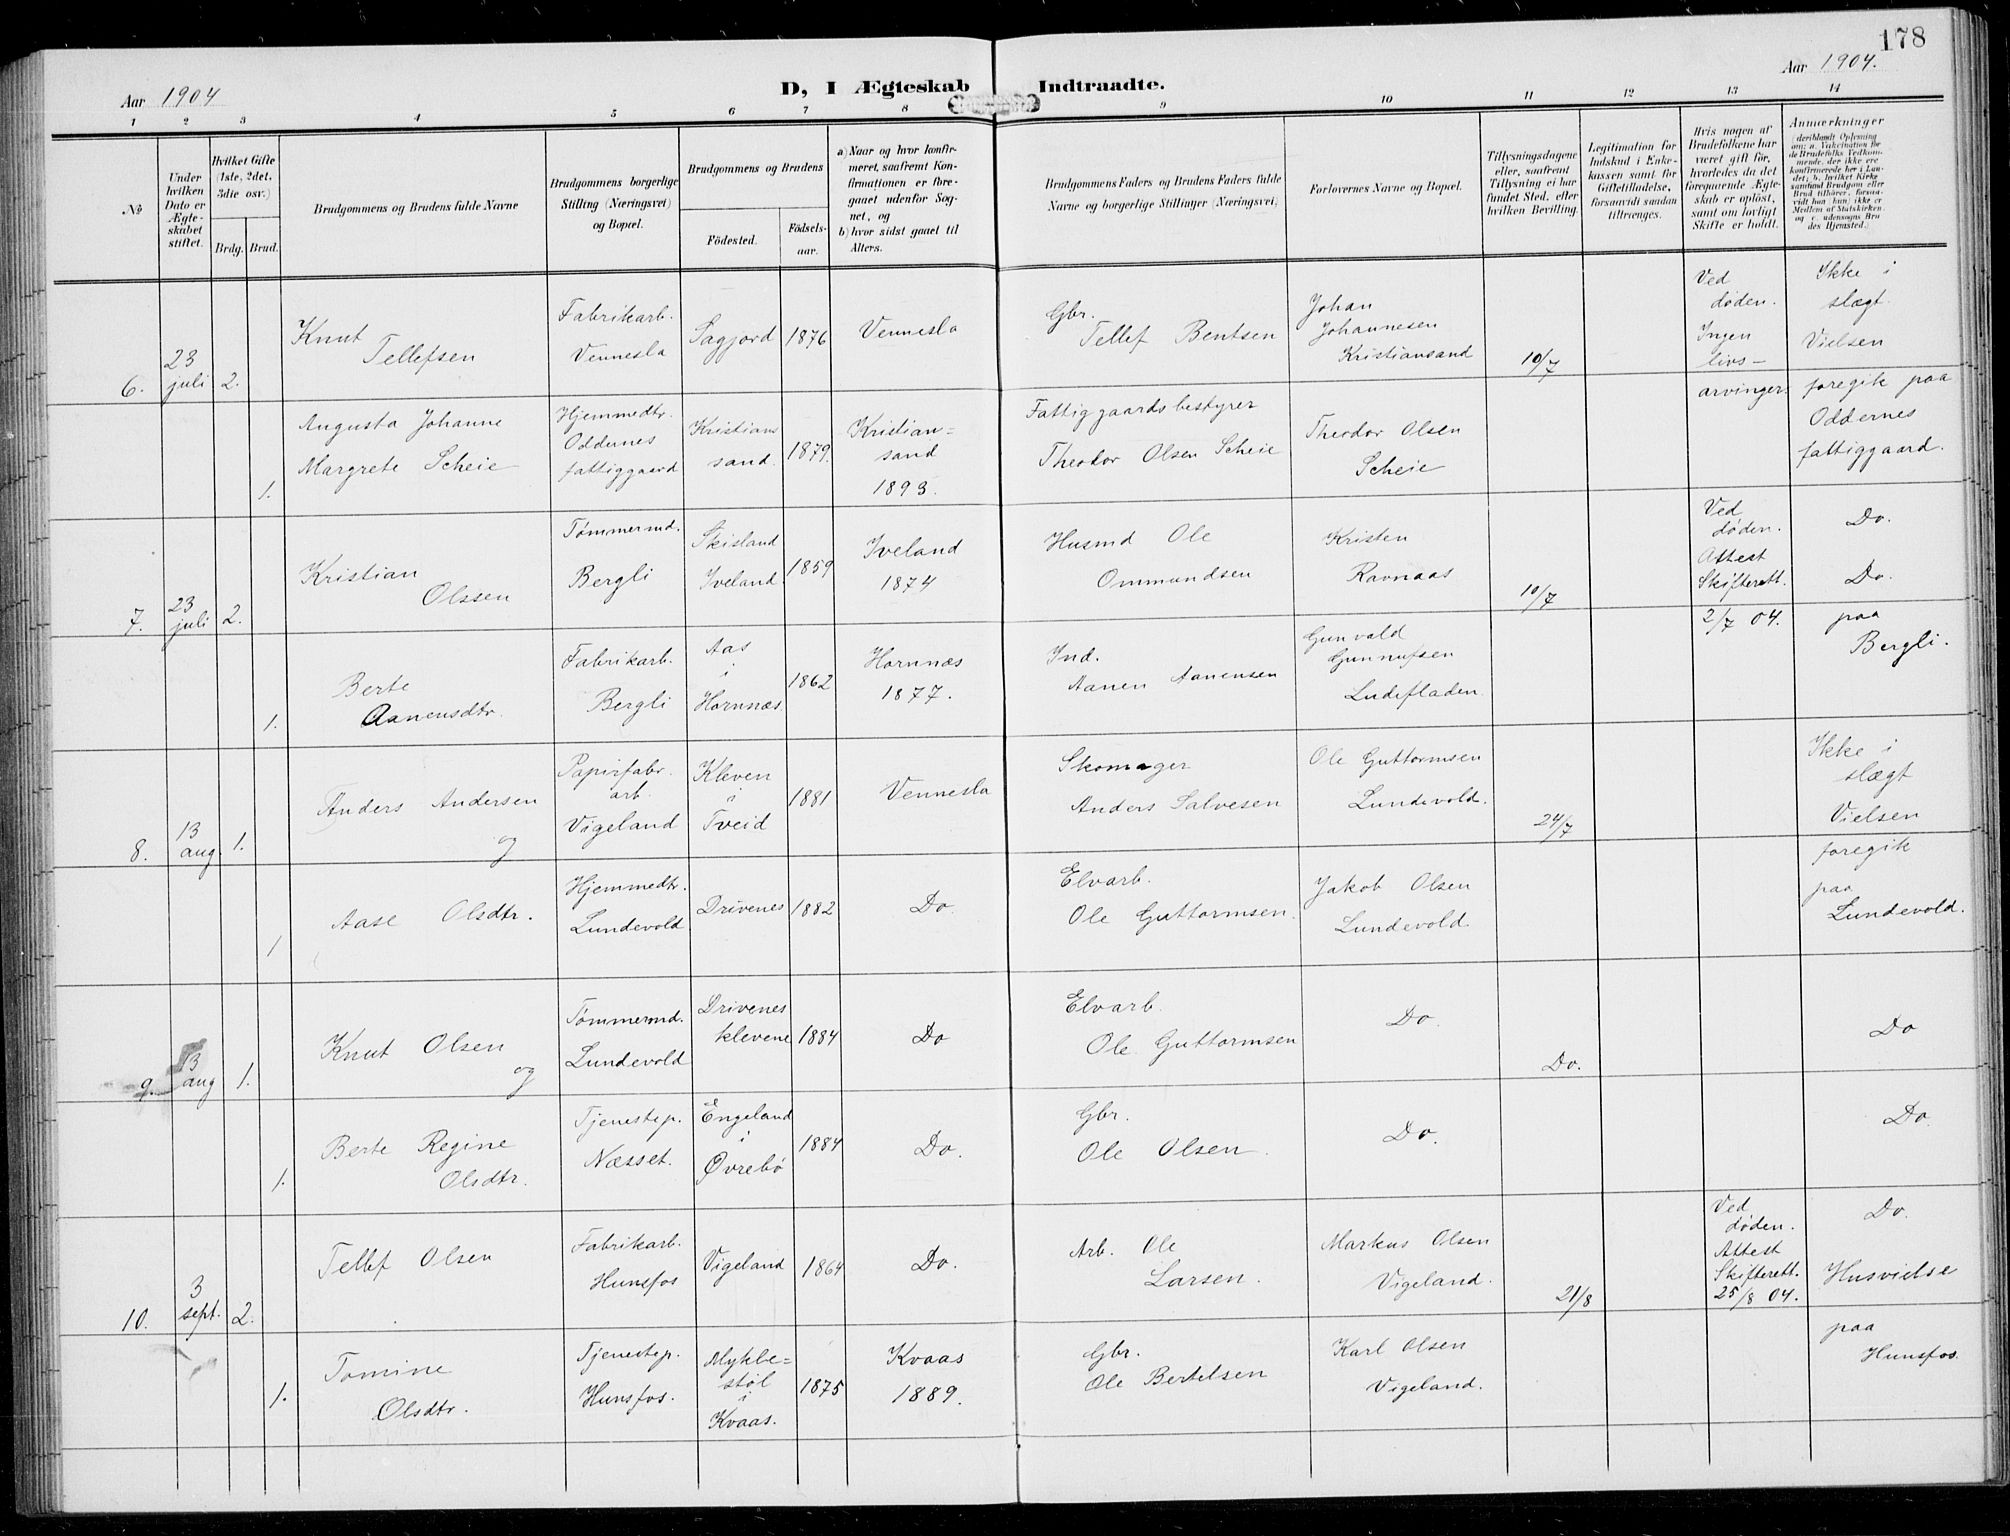 178
Aar 1904
D, I Ægteskab Indtraadte.
Aar 1904.
1 2 3 4 5 6 7 8 9 10 11 12 13 14
№
Under hvilken Dato er Ægteskabet stiftet.
Hvilket Gifte (1ste, 2det, 3die osv.)
Brdg. Brud.
Brudgommens og Brudens fulde Navne
Brudgommens borgerlige Stilling (Næringsvei) og Bopæl.
Brudgommens og Brudens
Födested.
Födselsaar.
a) Naar og hvor konfirmeret, saafremt Konfirmationen er foregaaet udenfor Sognet, og
b) hvor sidst gaaet til Alters.
Brudgommens Faders og Brudens Faders fulde Navne og borgerlige Stillinger (Næringsvei)
Forlovernes Navne og Bopæl.
Tillysningsdagene eller, saafremt Tillysning ei har fundet Sted, efter hvilken Bevilling.
Legitimation for Indskud i Enkekassen samt for Giftetilladelse, forsaavidt saadan tiltrænges.
Hvis nogen af Brudefolkene har været gift för, hvorledes da det foregaaende Ægteskab er oplöst, samt om lovligt Skifte er holdt.
Anmærkninger
(deriblandt Oplysning om: a. Vakcination for de Brudefolks Vedkommende, der ikke ere konfirmerede her i Landet; b. hvilket Kirkesamfund Brudgom eller Brud tilhörer, forsaavidt han (hun) ikke er Medlem af Statskirken og c. udensogns Brudes Hjemsted.)
6.
23
juli
2.
Knut
Tellefsen
Fabrikarb.
Vennesla
Sagjord
1876
Vennesla
Gbr.
Tellef Bentsen
Johan
Johannesen
Kristiansand
10/7
Ved
døden.
Ingen
livs-
arvinger.
Ikke i
slægt.
Vielsen
foregik paa
Oddernes
fattiggaard.
1.
Augusta Johanne
Margrete Scheie
Hjemmedtr.
Oddernes
fattiggaard
Kristians
sand.
1879.
Kristian=
sand
1893.
Fattiggaardsbestyrer
Theodor Olsen Scheie
Theodor Olsen
Scheie
7.
23
juli
2.
Kristian
Olssen
Tømmermd.
Bergli
Skisland
Iveland
1859
Iveland
1874
Husmd Ole
Ommundsen
Kristen
Ravnaas
10/7
Ved
døden.
Attest
Skifterett.
2/7 04.
Do.
Do.
paa
Bergli.
1.
Berte
Aanensdtr.
Fabrikarb.
Bergli
Aas
i
Hornnæs
1862
Hornnæs
1877.
Ind.
Aanen Aanensen
Gunvald
Gunnufsen
Ludefladen
8.
13
aug.
1.
Anders Andersen
og
Papirfabr.
arb.
Vigeland
Kleven
i
Tveid
1881
Vennesla
Skomager
Anders Salvesen
Ole Guttormsen
Lundevold.
24/7
Ikke i
slægt
Vielsen
foregik
paa
Lundevold.
1
Aase Olsdtr.
Hjemmedtr.
Lundevold
Drivenes
1882
Do.
Elvarb.
Ole Guttormsen.
Jakob Olsen
Lundevold
9.
13
aug
1.
Knut Olsen
og
Tømmermd.
Lundevold
Drivenes
klevene
1884
Do
Elvarb.
Ole Guttormsen
Do.
Do.
Do
1.
Berte Regine
Olsdtr.
Tjenestep.
Næsset.
Engeland
i
Øvrebø
1884
Do.
Gbr.
Ole Olsen.
Do.
Do
10.
3
sept.
2.
Tellef Olsen
Fabrikarb.
Hunsfos
Vigeland
1864
Do.
Arb. Ole
Larsen.
Markus Olsen
Vigeland.
21/8
Ved
døden.
Attest
Skifterett.
25/8 04.
Do.
Husvielse
paa
Hunsfos.
1.
Tomine
Olsdtr.
Tjenestep.
Hunsfos.
Mykbe=
støl
i
Kvaas.
1875
Kvaas
1889.
Gbr.
Ole Bertelsen
Karl Olsen
Vigeland.